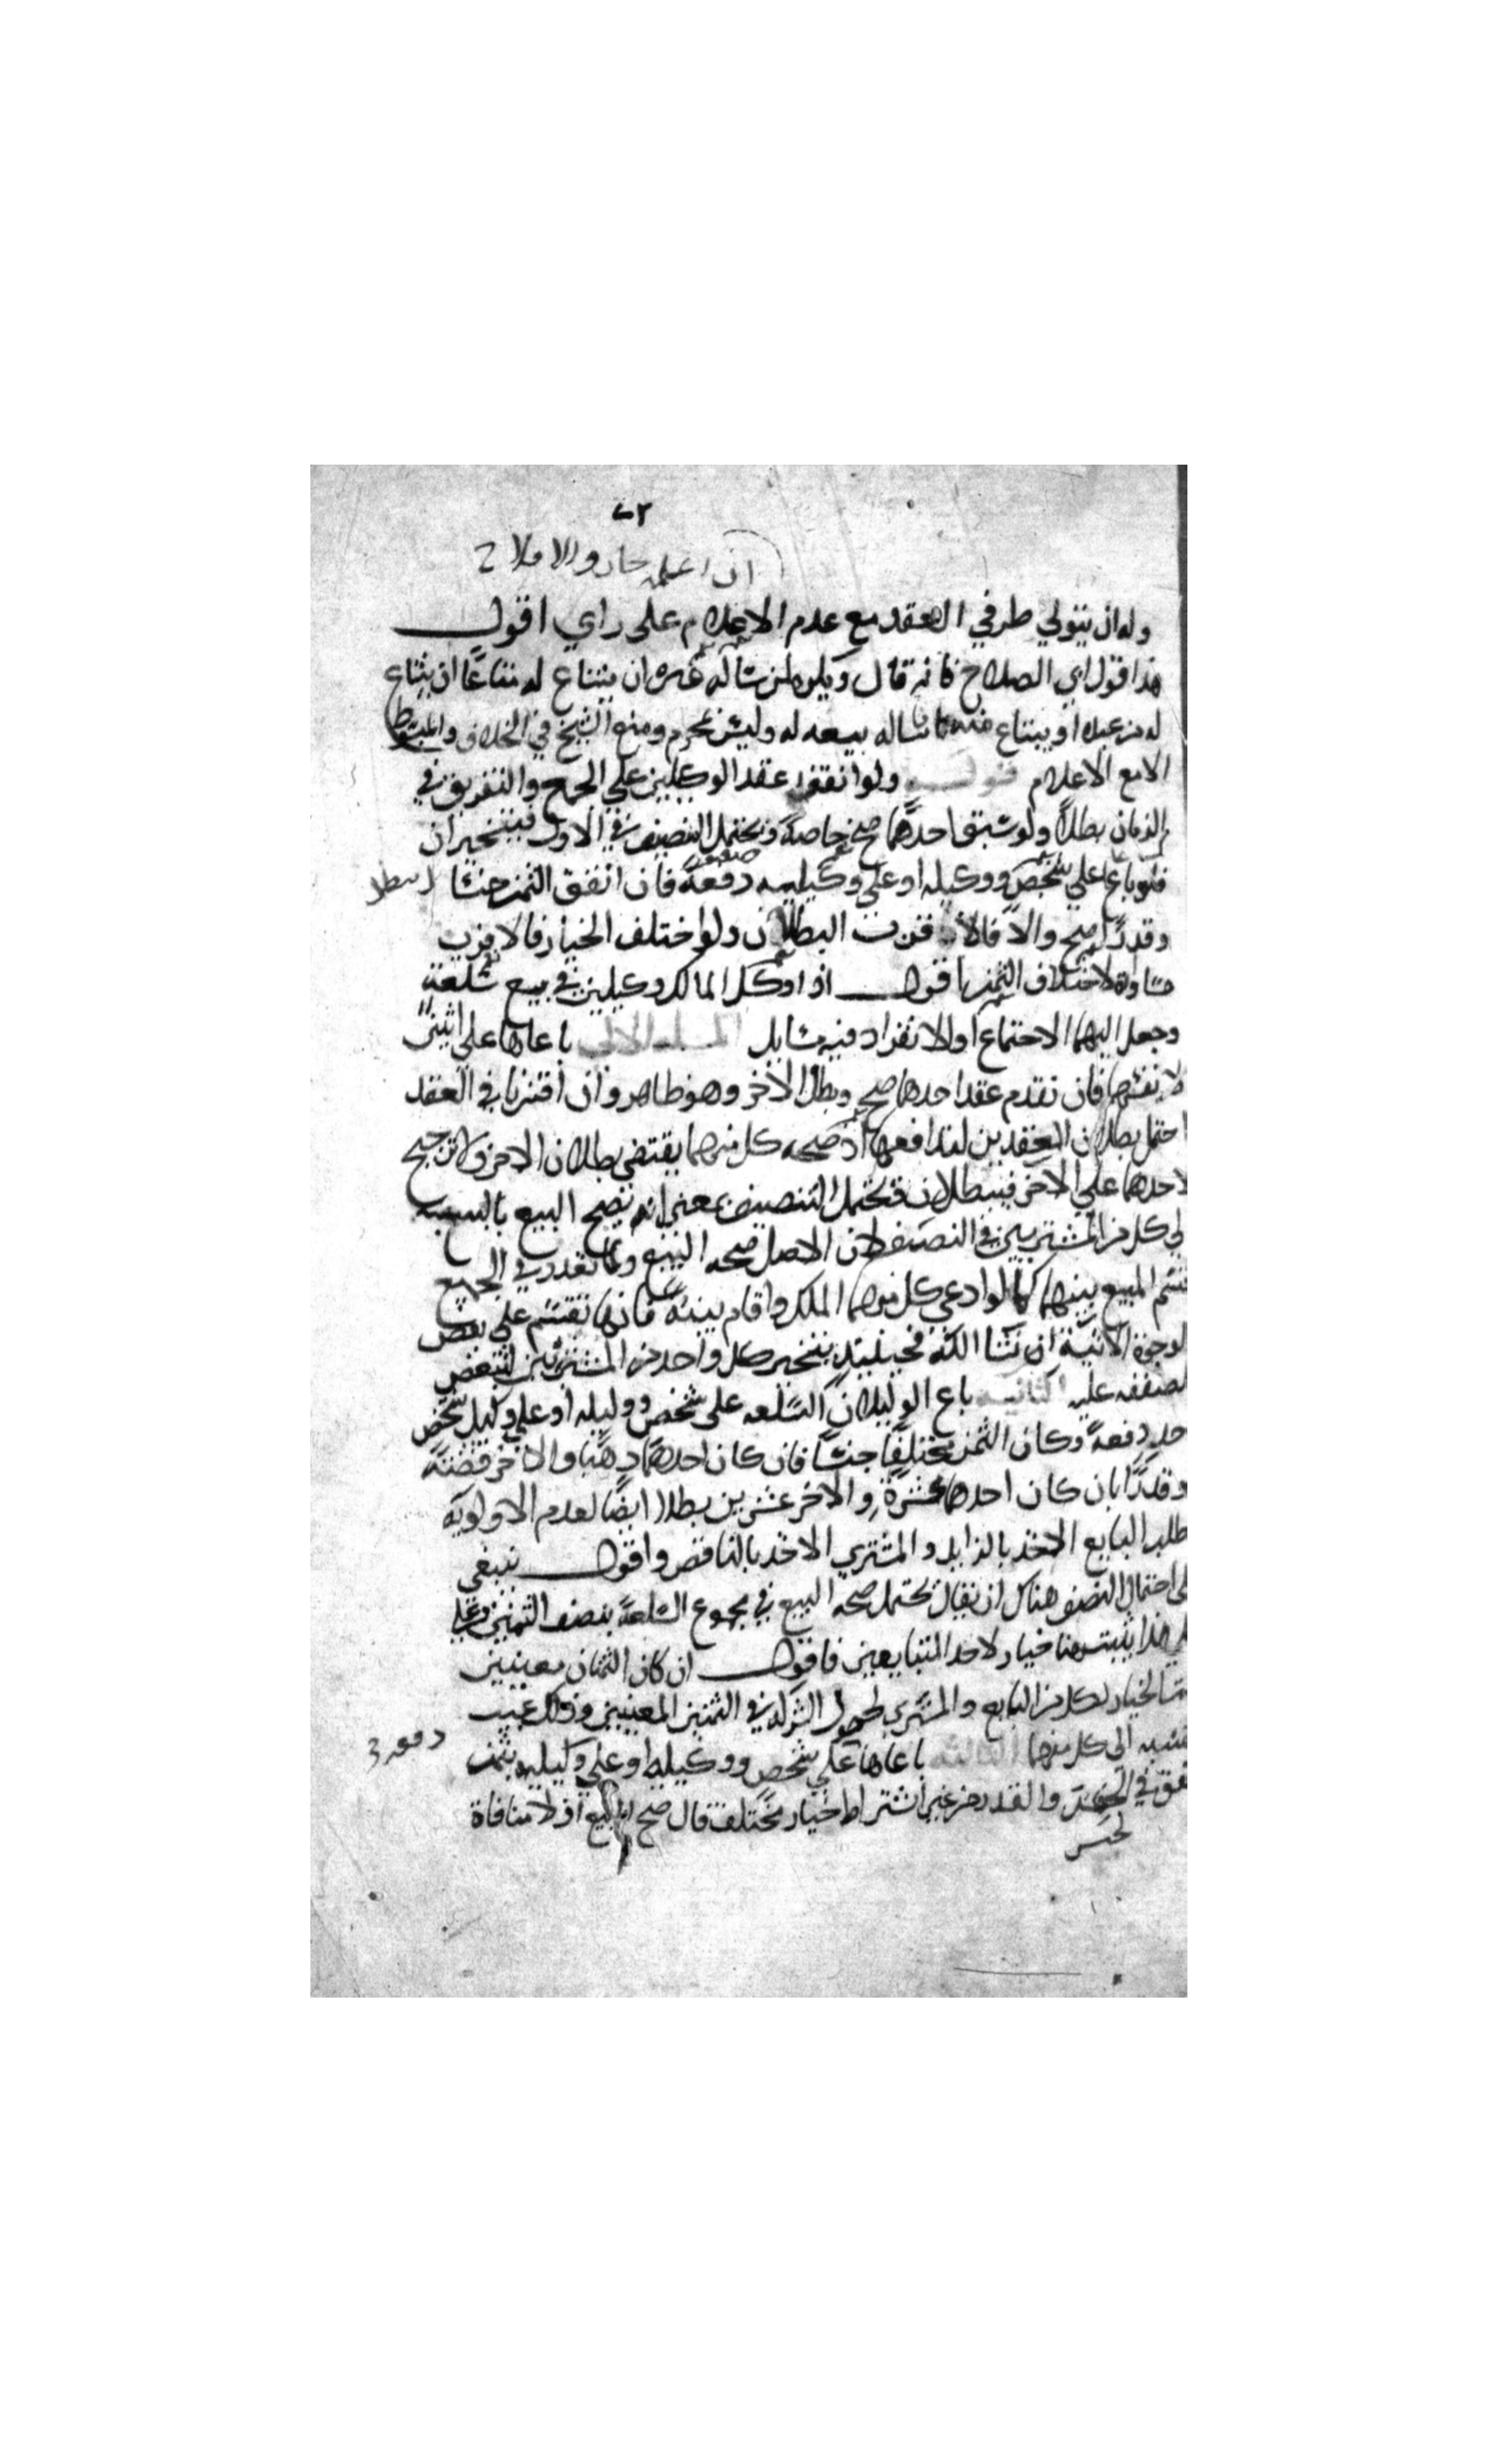 وله ان يتولي طرفي العقد مع عدم الاعلام علي راي اقول
هذا قول ابي الصلاح فانه قال ويكره لمن ساله غيره ان يبتاع له متاعا ان يبتاع
له من عنده او يبتاع منه ما ساله بيعه له وليس بمحرم ومنع الشيخ في الخلاف والمبسوط
الا مع الاعلام قوله ولو اتفق عقد الوكيلين علي الجمع والتفريق في
الزمان بطلا ولو سبق احدهما صح خاصة ويحتمل التنصيف في الاول فيتخيران
فلو باعا علي شخص ووكيله او علي وكيليه دفعة فان اتفق الثمن جنسا
وقدرا صح والا فالاقرب البطلان ولو اختلف الخيار فالاقرب
مساواة لاختلاف الثمن اقول اذا وكل المالك وكيلين في بيع سلعة
وجعل اليهما الاجتماع والانفراد فيه مسايل المسلة الاولي باعاها علي اثنين
لا نفسهما فان تقدم عقد احدهما صح وبطل الاخر وهو ظاهر وان اقترنا في العقد
احتمل بطلان العقدين لتدافعهما اذ صحة كل منهما يقتضي بطلان الاخر ولا ترجيح
لاحدهما علي الاخر فيبطلان ويحتمل التنصيف بمعني انه يصح البيع بالنسبة
الي كل من المشتريين في النصف لان الاصل صحة البيع ولما تعذر في الجميع
قسم المبيع بينهما كما لو ادعي كل منهما الملك واقام بينة فانها تقسم علي بعض
الوجوه الاتية ان شا الله فحينئذ يتخير كل واحد من المشتريين لتبعض
الصفقة عليه الثانية باع الوكيلان السلعة علي شخص ووكيله او علي وكيل شخص
واحد دفعة وكان الثمن مختلفا جنسا فان كان احدهما ذهبا والاخر فضة
وقدرا بان كان احدهما عشرة والاخر عشرين بطلا ايضا لعدم الاولوية
طلب البايع الاخذ بالزايد والمشتري الاخذ بالناقص واقول ينبغي
علي احتمال التنصف هناك ان يقال يحتمل صحة البيع في مجموع السلعة بنصف الثمنين وعلي
هذا يثبت هنا خيار لاحد المتبايعين فاقول ان كان الثمنان معينين
الخيار لكل من البايع والمشتري لحصول الشركة في الثمنين المعينين وذلك عيب
بالنسبة الي كل منهما الثالثة باعاها علي شخص ووكيله او علي وكيليه بثمن
متفق في الجنس والقدر من غير اشتراط خيار مختلف قال صح البيع اذ لا منافاة